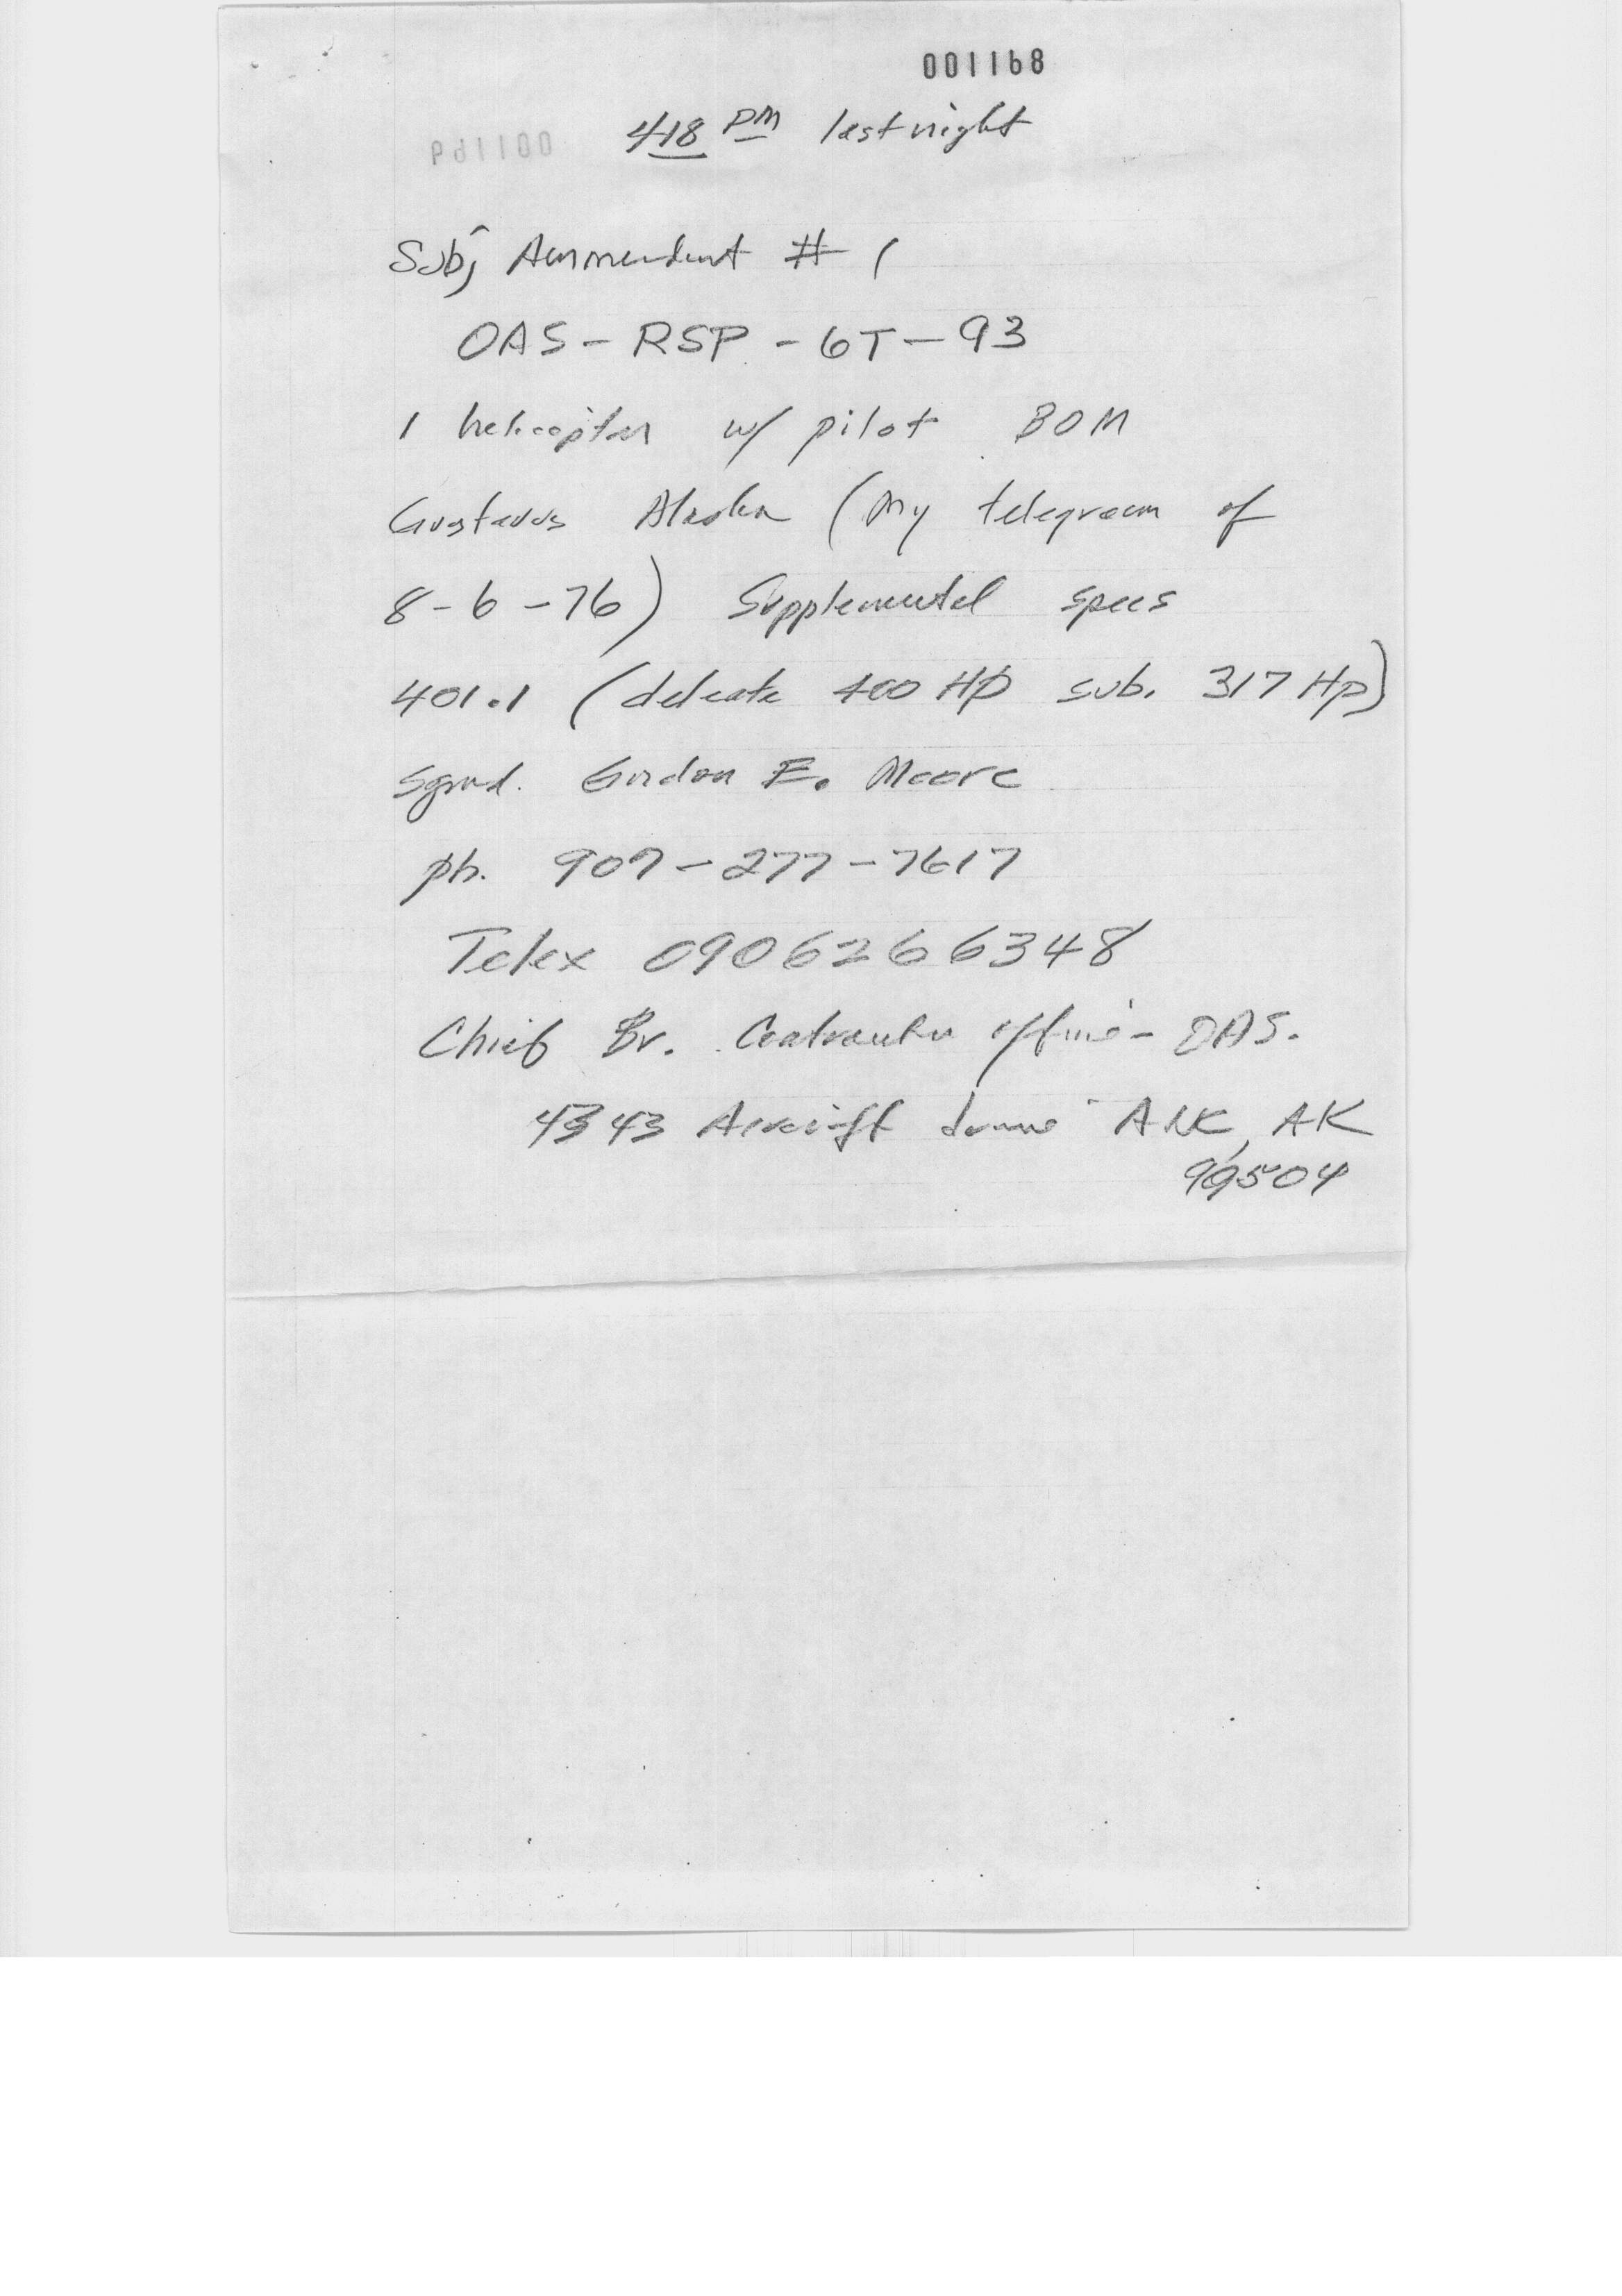 001168
418 PM last night
Subj Ammendment # 1
OAS - RSP - 6T - 93
1 helicopter w/ pilot BOM
Gustavus Alaska (My telegram of
8-6-76) Supplemental specs
401.1 (deleate 400 HP sub. 317 Hp)
Sgnd. Gordon E. Moore
ph. 907-277-7617
Telex 0906266348
Chief Br. Contracting office - OAS.
4343 Aircraft ANC, AK
99504